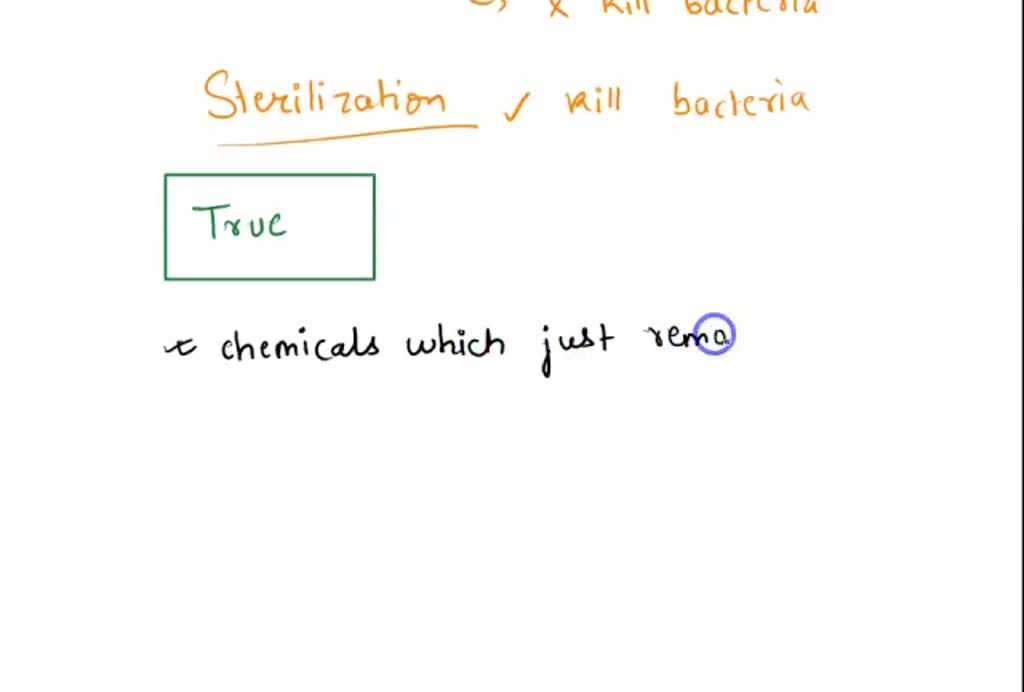 x kill bacteria
Sterilization ✓ kill bacteria
True
chemicals which just rema